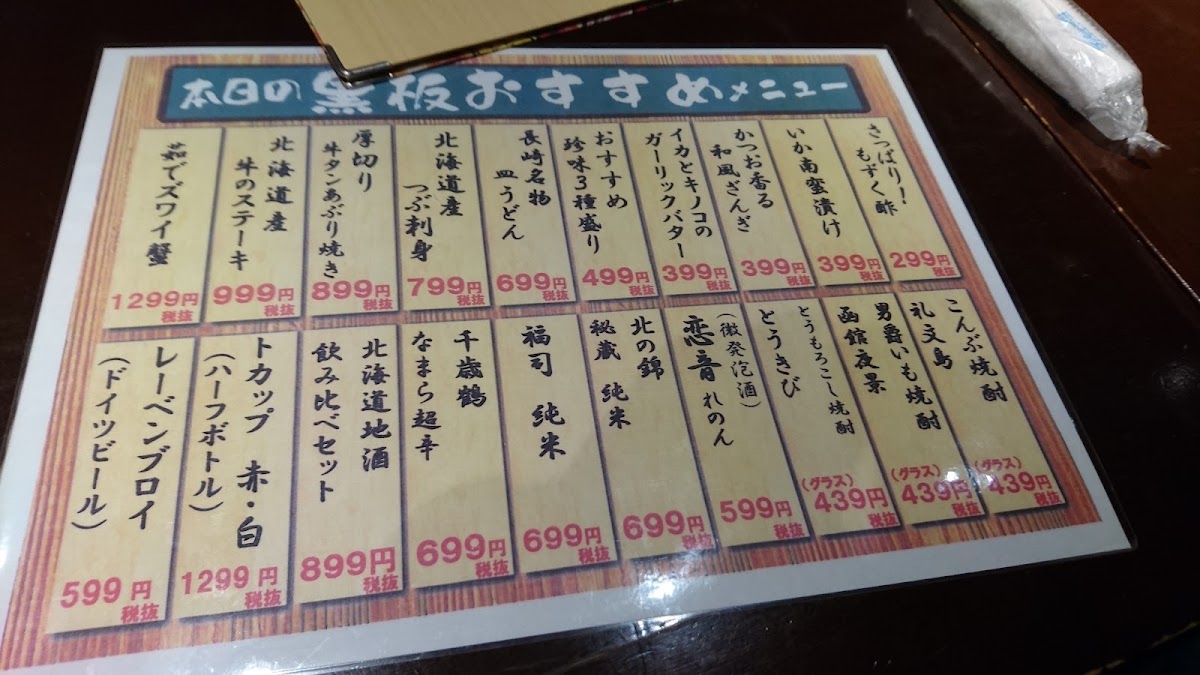 本日の黒板おすすめメニュー
さっぱり!
もずく酢
299円
税抜
いか南蛮漬け
399円
税抜
かつお香る
和風ざんぎ
399円
税抜
イカとキノコの
ガーリックバター
399円
税抜
おすすめ
珍味3種盛り
499円
税抜
長崎名物
皿うどん
699円
税抜
北海道産
つぶ刺身
799円
税抜
厚切り
牛タンあぶり焼き
899円
税抜
北海道産
牛のステーキ
999円
税抜
茹でズワイ蟹
1299円
税抜
こんぶ焼酎
礼文島
(グラス)
439円
税抜
男爵いも焼酎
函館夜景
(グラス)
439円
税抜
とうもろこし焼酎
とうきび
(グラス)
439円
税抜
(微発泡酒)
恋音 れのん
599円
税抜
北の錦
秘蔵 純米
699円
税抜
福司 純米
699円
税抜
千歳鶴
なまら超辛
699円
税抜
北海道地酒
飲み比べセット
899円
税抜
トカップ 赤・白
(ハーフボトル)
1299円
税抜
レーベンブロイ
(ドイツビール)
599円
税抜